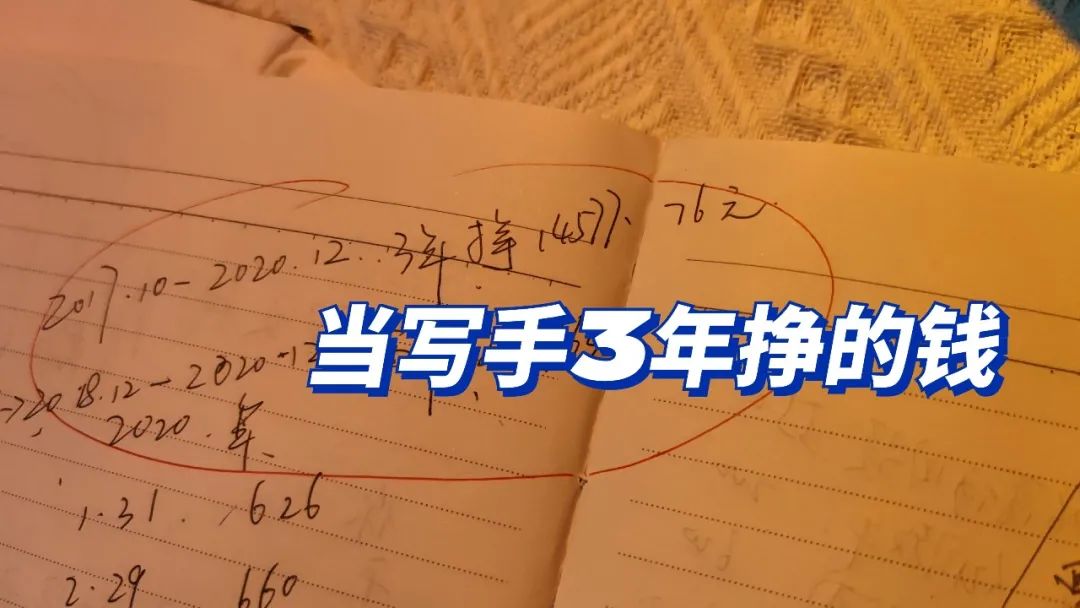 2017.10-2020.12.:3年挣14577.76元
当写手3年挣的钱
→2018.12-2020.12
2020.年
1.31. 626
2.29 660